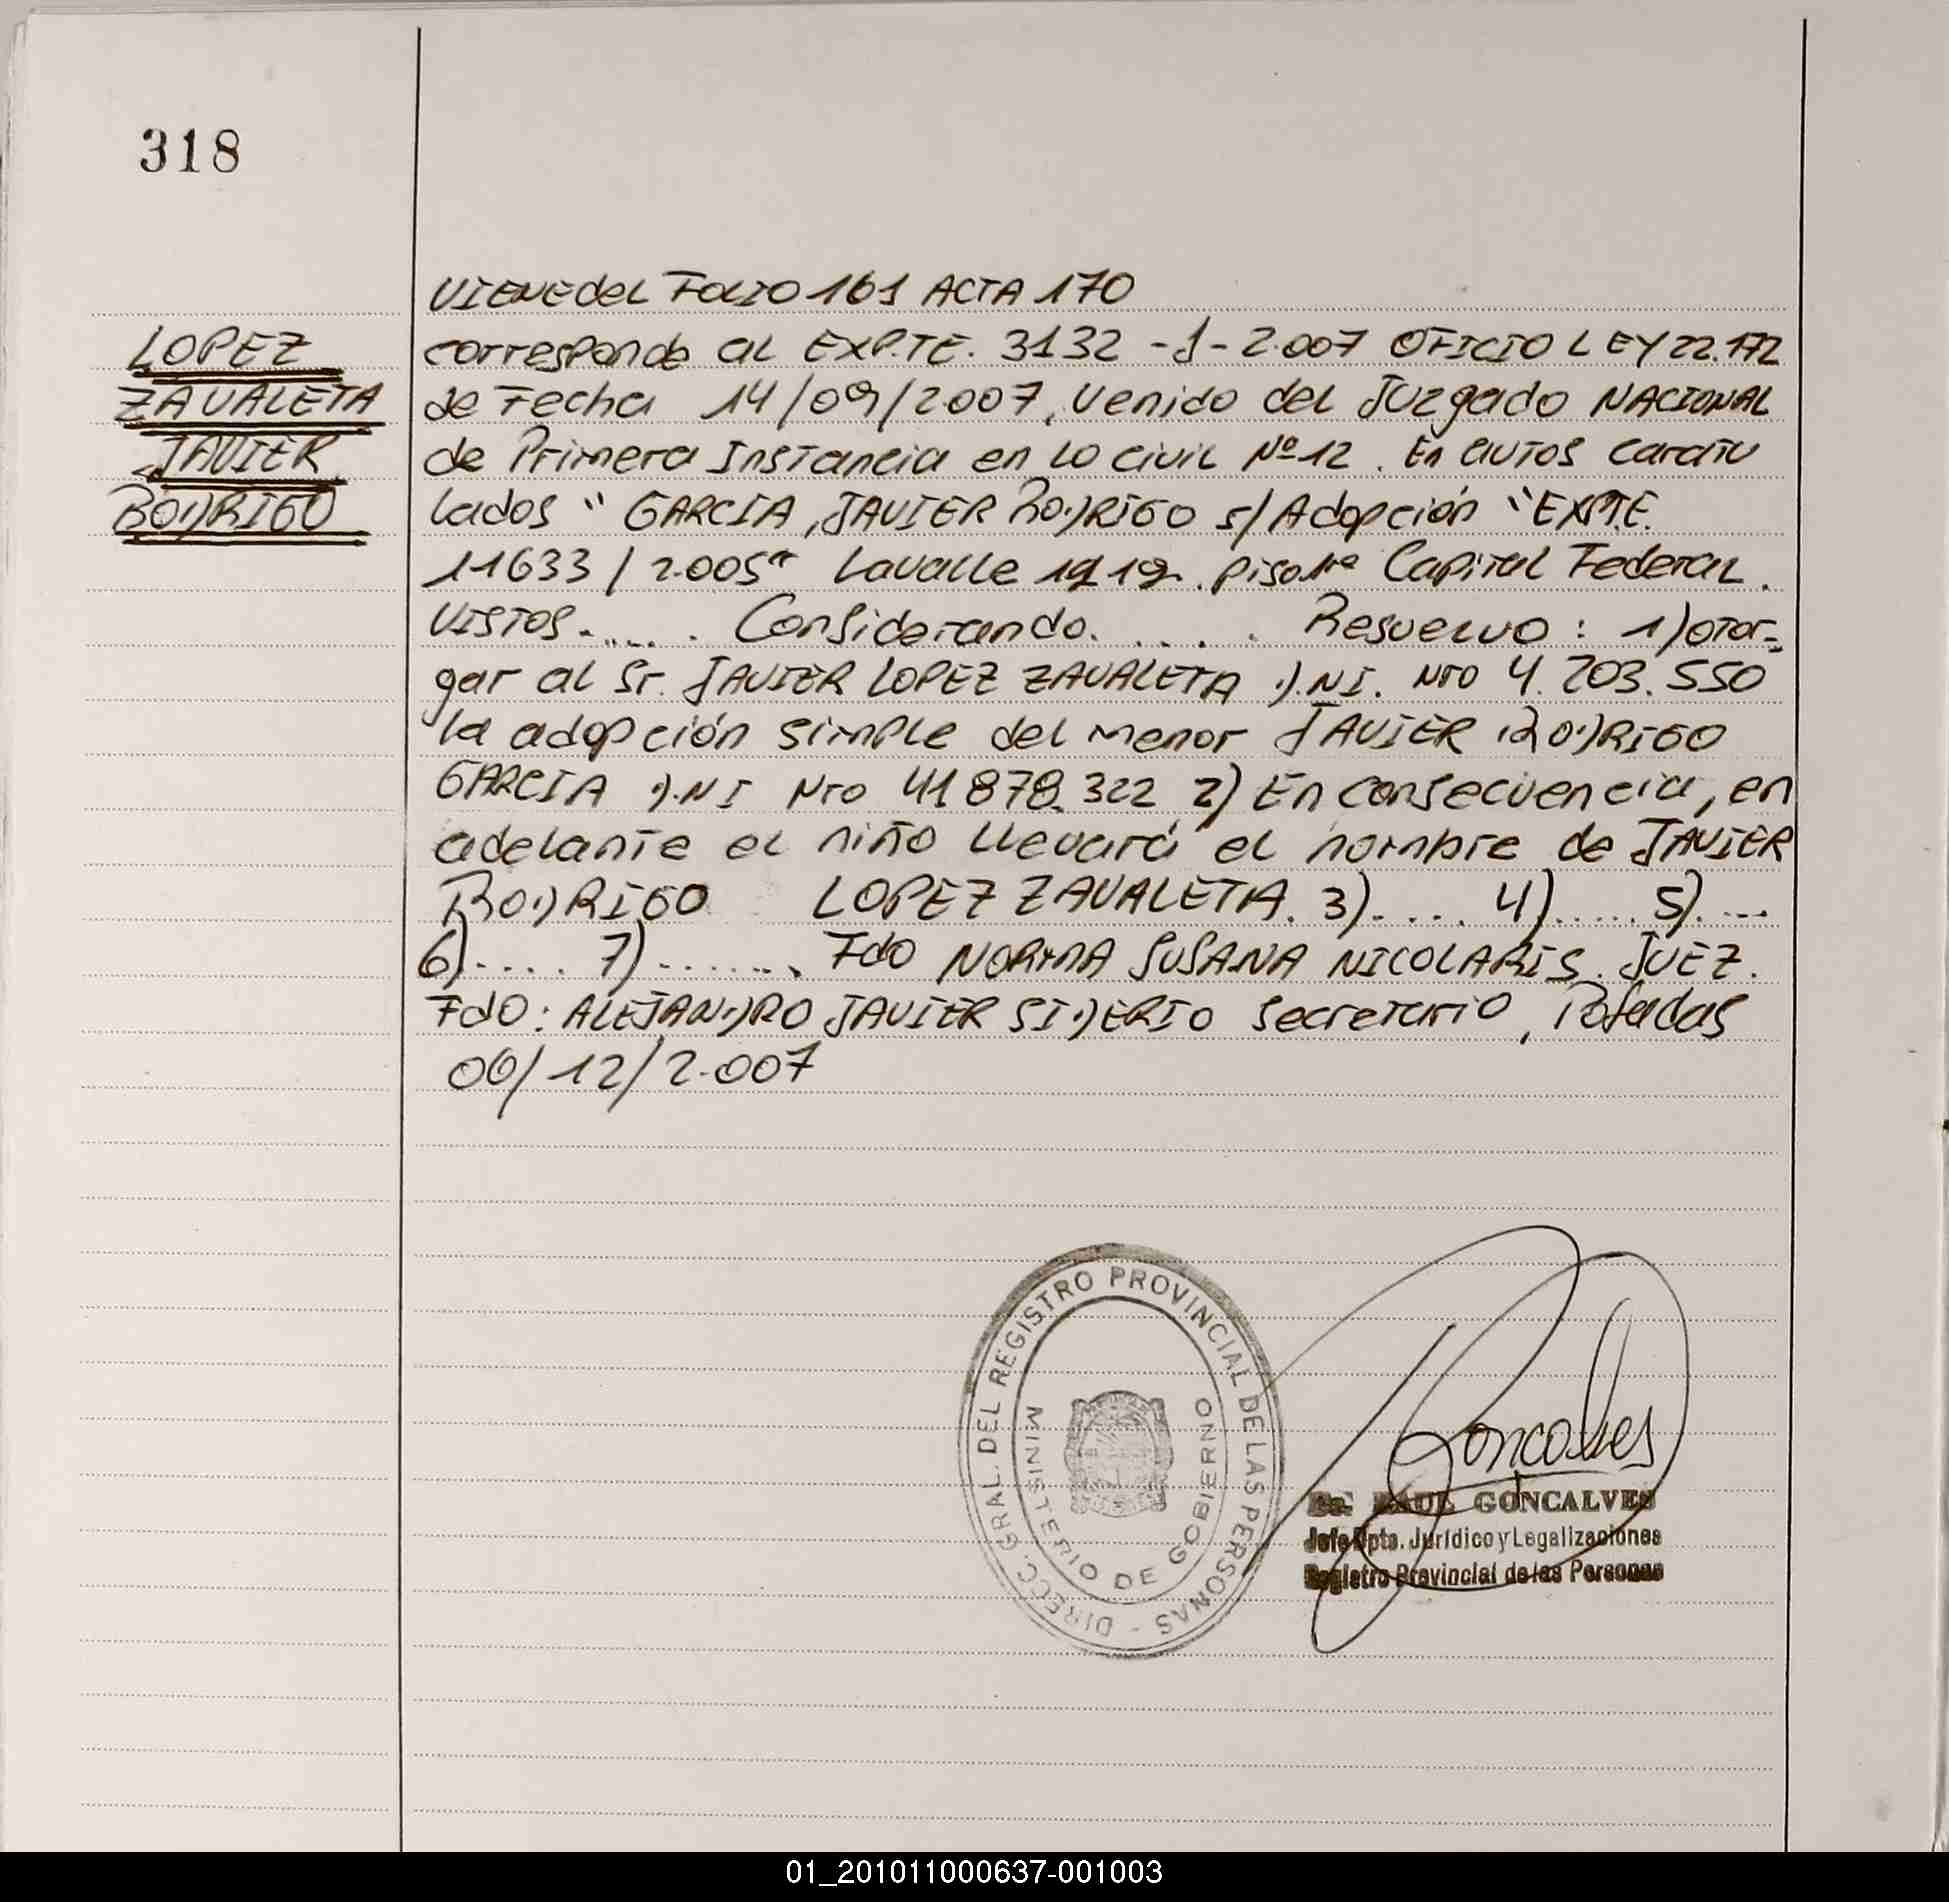 318
LOPEZ
ZAVALETA
JAVIER
RODRIGO
VIENE del FOLIO 161 ACTA 170
corresponde al EXP.TE. 3132 -J- 2.007 OFICIO LEY 22.172
de Fecha 14/09/2007, venido del Juzgado NACIONAL
de Primera Instancia en lo civil Nº 12. En autos caratu
lados " GARCIA, JAVIER RODRIGO s/ Adopción " EXPTE.
11633 / 2.005" Lavalle 1212. piso Capital Federal.
VISTOS...... Considerando...... Resuelvo : 1) otor-
gar al Sr. JAVIER LOPEZ ZAVALETA D.NI. Nro 4.203.550
la adopción simple del menor JAVIER RODRIGO
GARCIA D.NI Nro 41878.322 2) En consecuencia, en
adelante el niño llevará el nombre de JAVIER
RODRIGO LOPEZ ZAVALETA. 3)..... 4)...... 5)....
6)..... 7)........ Fdo NORMA SUSANA NICOLARIS. JUEZ.
Fdo: ALEJANDRO JAVIER SIDERIO Secretario, Posadas
06/12/2.007
DIRECC. GRAL. DEL REGISTRO PROVINCIAL DE LAS PERSONAS -
MINISTERIO DE GOBIERNO
Goncalves
Dr. RAUL GONCALVES
Jefe Dpto. Jurídico y Legalizaciones
Registro Provincial de las Personas
01_201011000637-001003